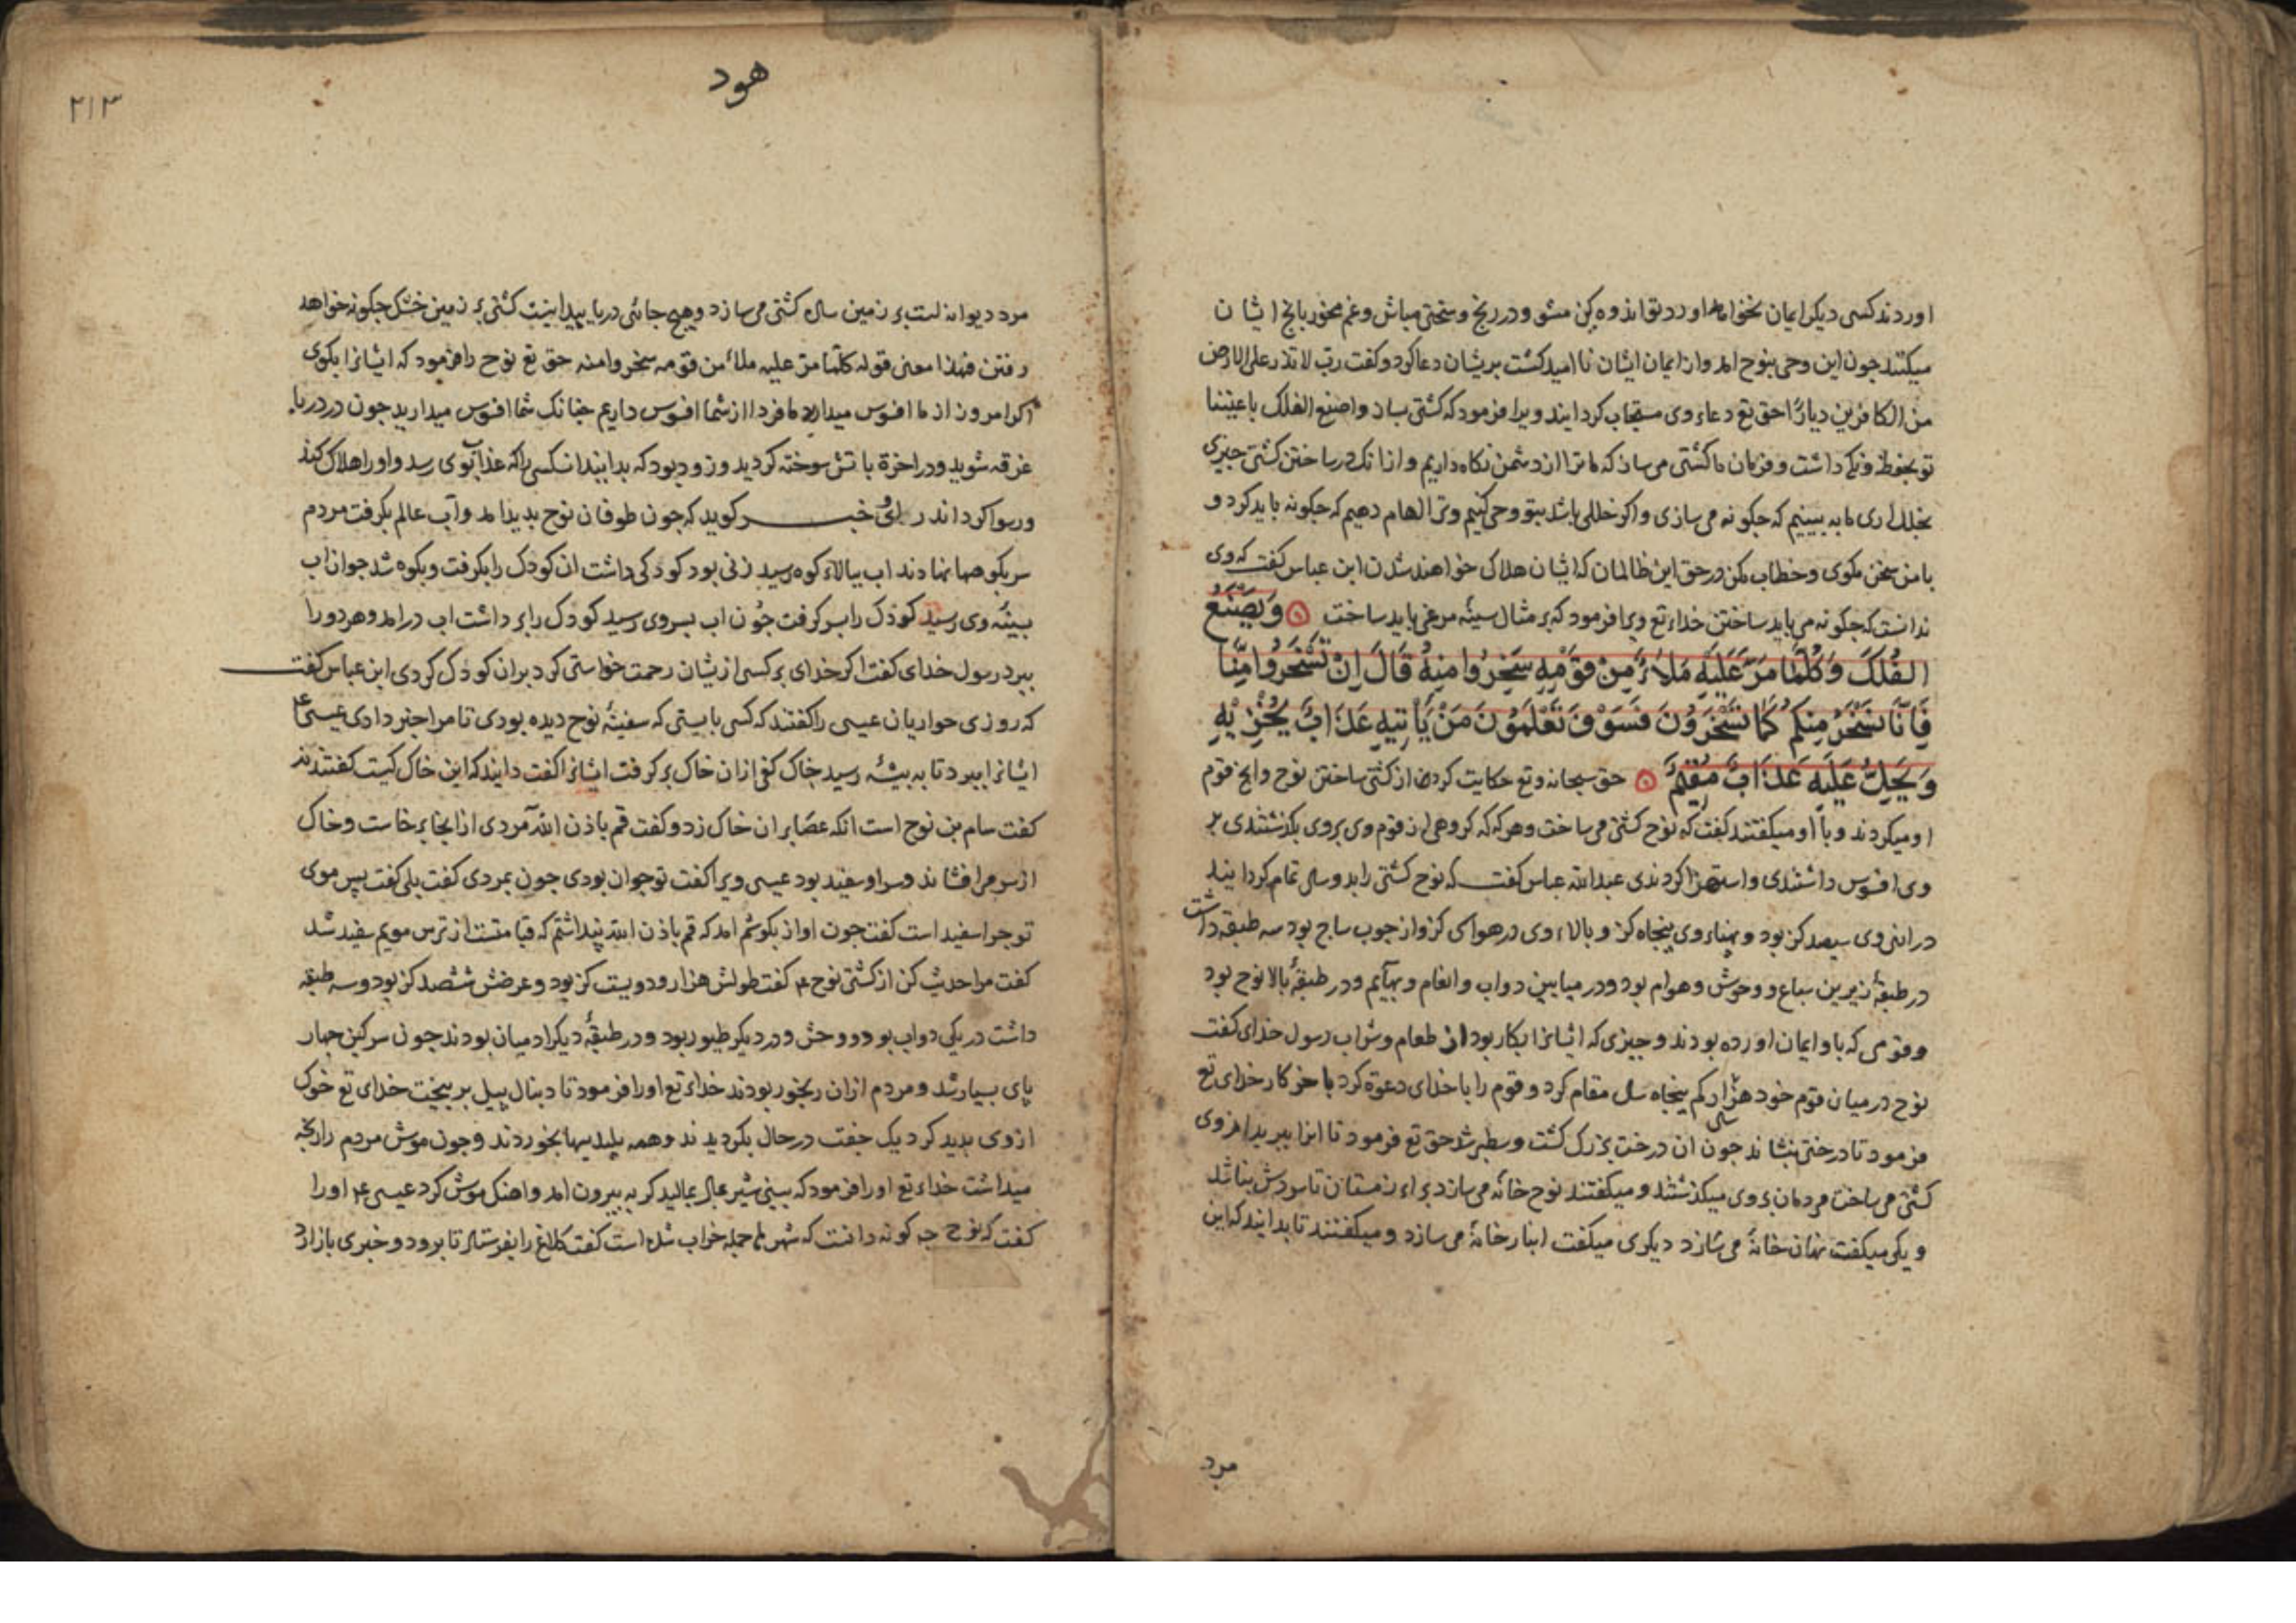 اوردند کسی دیکر ایمان نخواهد اورد تو اندوه کن مشو و در رنج و سختی مباش و غم مخور بانج ایشان
میکنند جون این وحی بنوح امد و از ایمان ایشان نا امید کشت بریشان دعا کرد و کفت رب لا تذر علی الارض
من الکافرین دیارًا حق تع دعاء وی مستجاب کردایند ویرا فرمود که کشتی بساز واصنع الفلک باعیننا
تو بحفظ و نکه داشت و فرمان ما کشتی می ساز که ما ترا از دشمن نکاه داریم و از انک در ساختن کشتی جیزی
بخلل اری ما به بینیم که جکونه می سازی و اکر خللی باشد بتو وحی کنیم و ترا الهام دهیم که جکونه باید کرد و
با من سخن مکوی و خطاب مکن در حق این ظالمان که ایشان هلاک خواهند شدن ابن عباس کفت که وی
ندانست که جکونه می باید ساختن خداء تع ویرا فرمود که بر مثال سینهٔ مرغی باید ساخت وَیَصْنَعُ
الْفُلْکَ وَکُلَّمَا مَرَّ عَلَیْهِ مَلَاءٌ مِنْ قَوْمِهِ سَخِرُوا مِنْهُ قَالَ اِنْ تَسْخَرُوا مِنَّا
فَاِنَّا نَسْخَرُ مِنْکُمْ کَمَا تَسْخَرُونَ فَسَوْفَ تَعْلَمُونَ مَنْ یَأْتِیهِ عَذَابٌ یُخْزِیْهِ
وَیَحِلُّ عَلَیْهِ عَذَابٌ مُقِیْمٌ حق سبحانه و تع حکایت کرد از کشتی ساختن نوح وانج قوم
او میکردند و با او میکفتند کفت که نوح کشتی می ساخت و هر که که کروهی از قوم وی بروی بکذشتندی بر
وی افسوس داشتندی و استهزا کردندی عبدالله عباس کفت که نوح کشتی را بدو سال تمام کردانید
درازی وی سیصد کز بود و پهناء وی پنجاه کز و بالاء وی در هوا سی کز و از جوب ساج بود سه طبقه داشت
در طبقهٔ زیرین سباع و وحوش و هوام بود و در میابین دواب و انعام و بهآیم و در طبقهٔ بالا نوح بود
و قومی که با و ایمان اورده بودند و جیزی که ایشانرا بکار بود از طعام و شراب رسول خدای کفت
نوح در میان قوم خود هزار کم پنجاه سال مقام کرد و قوم را با خدای دعوة کرد باخر کار خدای تع
فرمود تا درختی بنشاند جون ان درخت بزرک کشت و سطبر شد حق تع فرمود تا انرا ببرید از وی
کشتی می ساخت مردمان بروی میکذشتند و میکفتند نوح خانه می سازد براء زمستان تا سردش نباشد
و یکی میکفت نهان خانهٔ می سازد دیکری میکفت انبار خانهٔ می سازد و میکفتند تا بدانید که این
مرد
هود
۲۱۳
مرد دیوانه است بر زمین سال کشتی می سازد و هیج جائی دریا پیدا نیست کشتی بر زمین خشک جکونه خواهد
رفتن فهذا معنی قوله کلّما مرّ علیه ملاٌ من قومه سخروا منه حق تع نوح را فرمود که ایشانرا بکوی
اکر امروز از ما افسوس میدارید ما فردا از شما افسوس داریم جنانک شما افسوس میدارید جون در دریا
غرقه شوید و در اخرة باتش سوخته کردید و زود بود که بدانید انکسی را که عذاب بوی رسد و اورا هلاک کند
و رسوا کرداند در خبر کوید که جون طوفان نوح بدید امد و آب عالم بکرفت مردم
سر بکوهها نهادند اب ببالاء کوه رسید زنی بود کودکی داشت ان کودک را بکرفت و بکوه شد جوان اب
بسینهٔ وی رسید کودک را بر سر کرفت جون اب بسر وی رسید کودک را بر داشت اب درامد و هر دو را
ببرد رسول خدای کفت اکر خدای بر کسی ازیشان رحمت خواستی کرد بران کودک کردی ابن عباس کفت
که روزی حواریان عیسی را کفتند که کسی بایستی که سفینهٔ نوح دیده بودی تا مرا خبر دادی عیسی ع
ایشانرا ببرد تا به پشتهٔ رسید خاک کفی ازان خاک بر کرفت ایشانرا کفت دانید که این خاک کیست کفتند نه
کفت سام بن نوح است انکه عصا بران خاک زد و کفت قم باذن الله مردی از انجا برخاست و خاک
از سر می افشاند و سر او سفید بود عیسی ویرا کفت تو جوان بودی جون بمردی کفت بلی کفت پس موی
تو جرا سفید است کفت جون اواز بکوشم امد که قم باذن الله پنداشتم که قیامتست از ترس مویم سفید شد
کفت مرا حدیث کن از کشتی نوح ع کفت طولش هزار و دویست کز بود و عرضش ششصد کز بود و سه طبقه
داشت در یکی دواب بود و وحش و در دیکر طیور بود و در طبقهٔ دیکر ادمیان بودند جون سرکین جهار
پای بسیار شد و مردم ازان رنجور بودند خداء تع اورا فرمود تا دنبال پیل بر پیخت خدای تع خوک
از وی بدید کرد یک جفت در حال بکردیدند و همه پلیدیها بخوردند و جون موش مردم را رنجه
میداشت خداء تع اورا فرمود که بینی شیر بمالید کربه بیرون امد و اهنک موش کرد عیسی ع اورا
کفت که نوح جه کونه دانست که شهر ها جمله خراب شده است کفت کلاغ را بفرستاد تا برود و خبری باز ارد